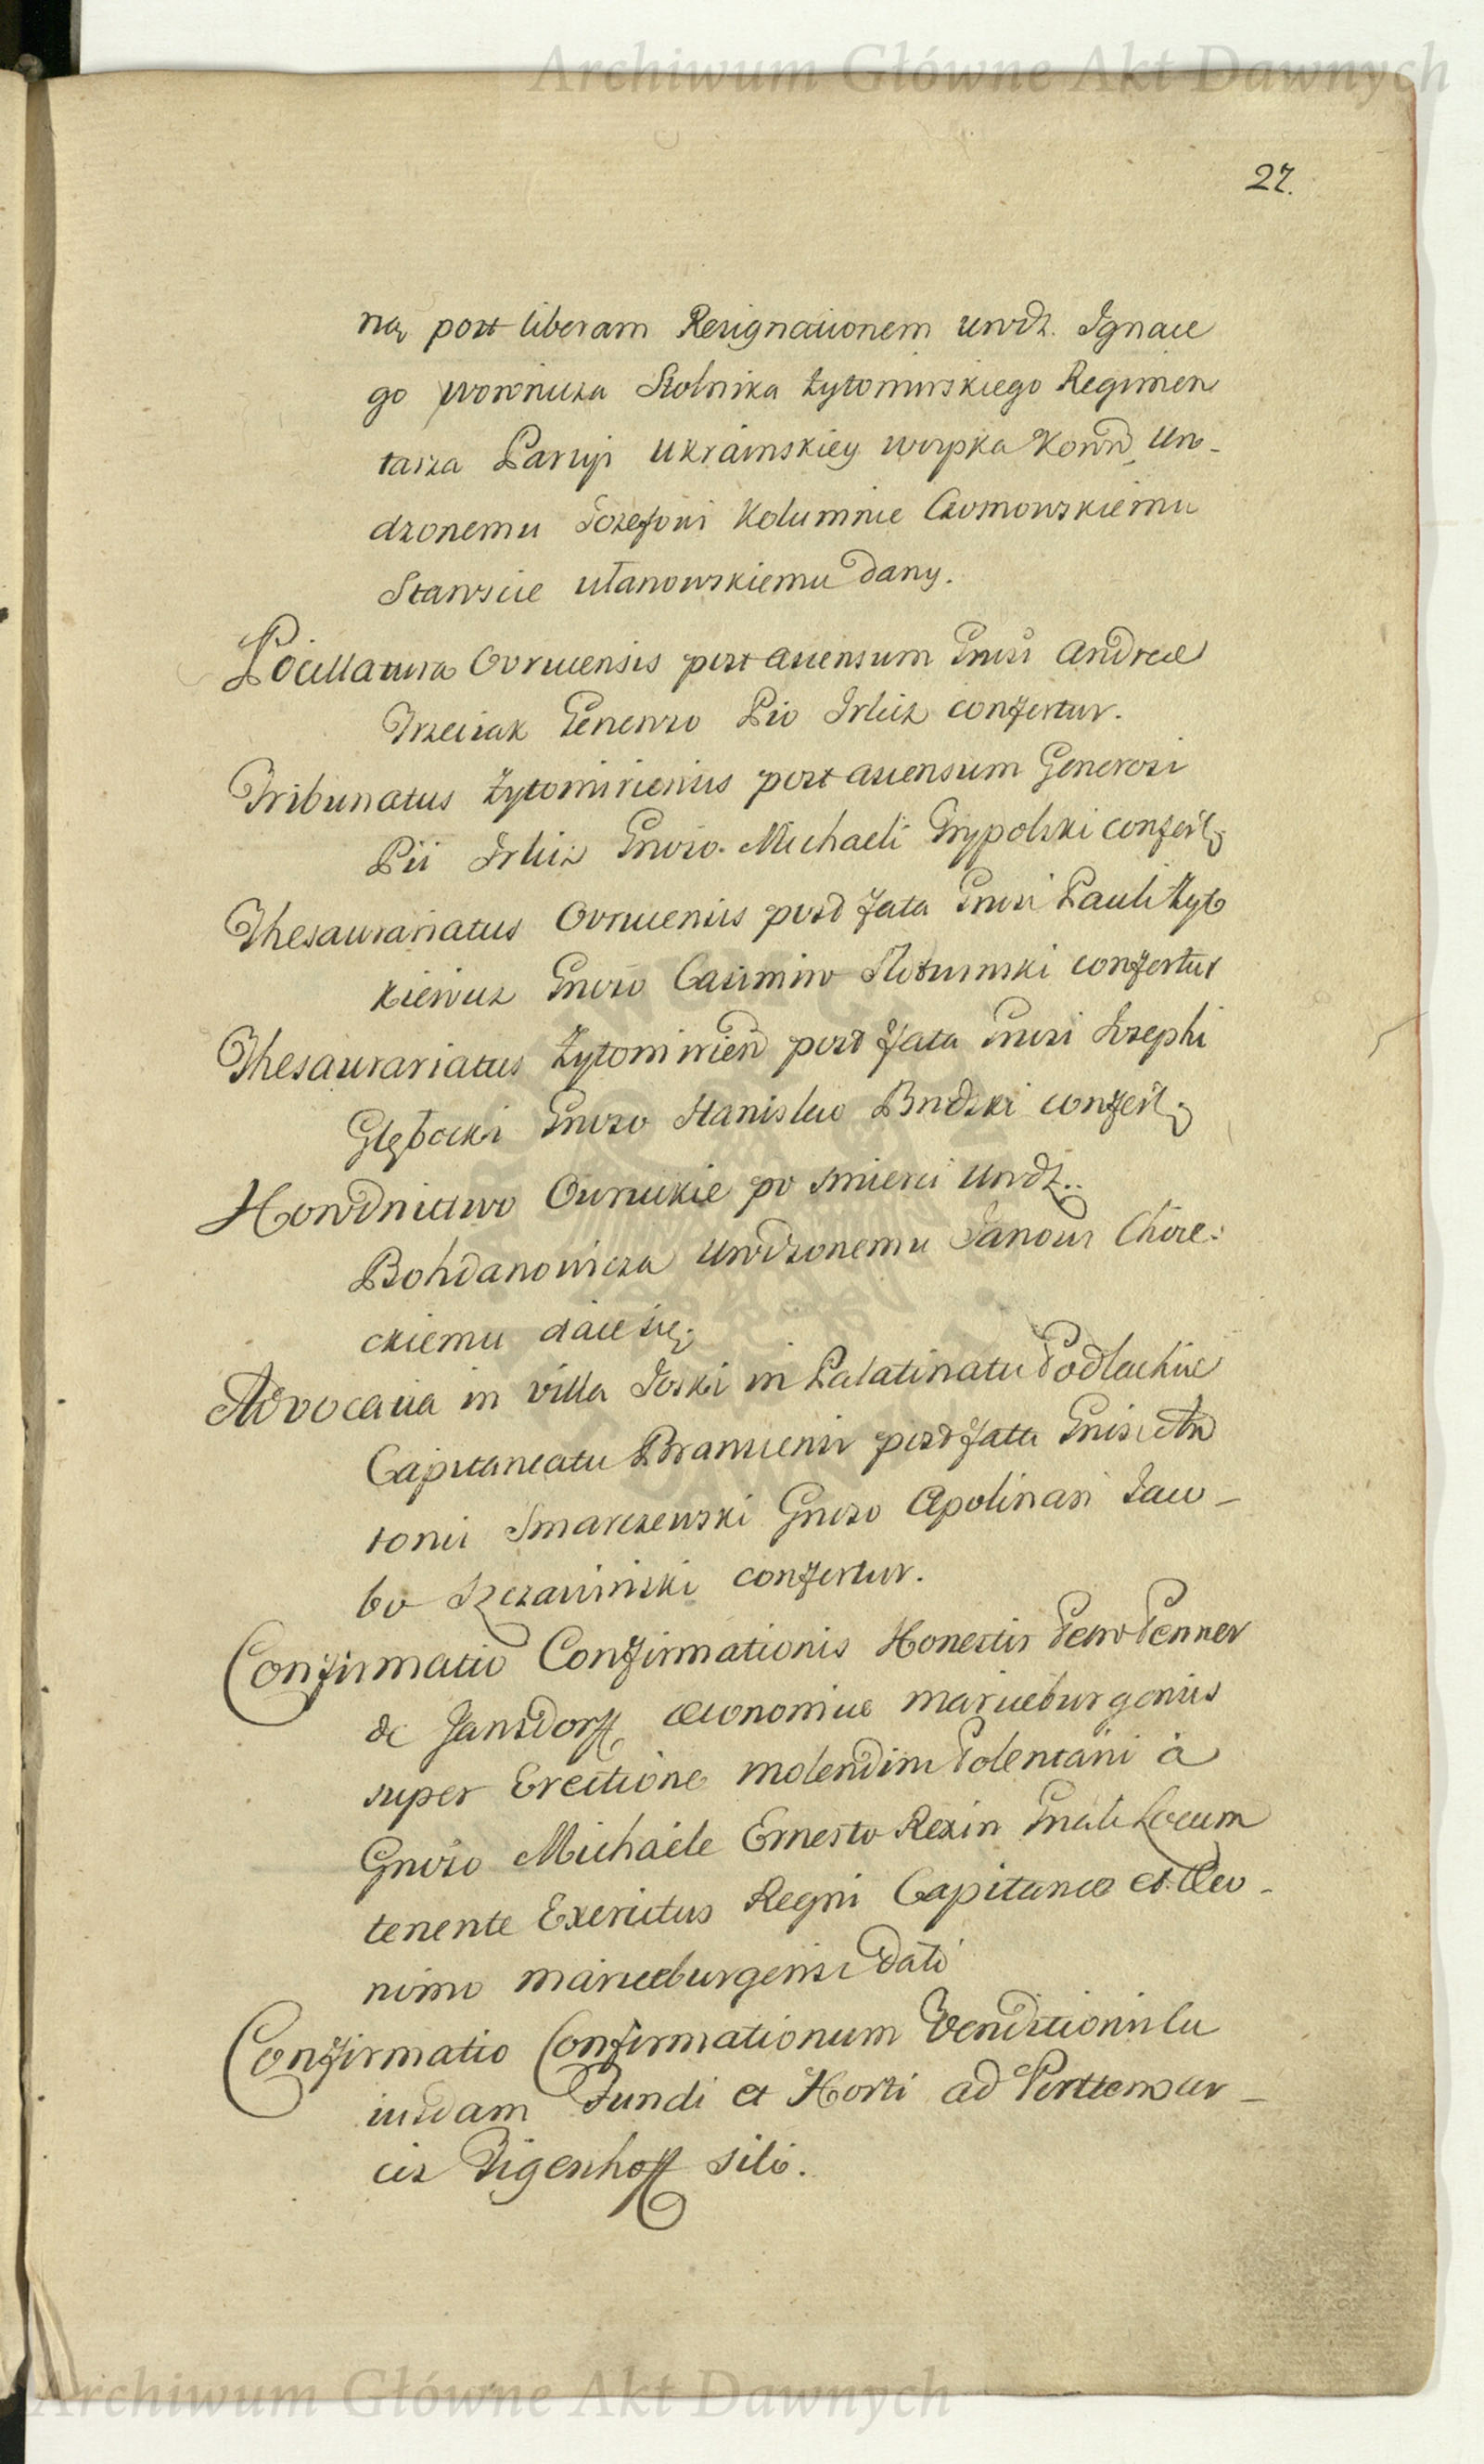 Archiwum Główne Akt Dawnych
27.
ną post liberam Resignationem Urodz. Ignace
go Woronicza Stolnika Żytomirskiego Regimen
tarza Partyi Ukrainskiey Woyska Koron. Uro-
dzonemu Jozefowi Kolumnie Czosnowskiemu
Staroscie Ułanowskiemu dany.
Pocillatura Ovrucensis post ascensum Gnrsi Andreæ
Trzeciak Generoso Pio Irlicz confertur.
Tribunatus Żytomiriensis post ascensum Generosi
Pii Irlicz Gnroso Michaeli Trypolski confertꝫ
Thesaurariatus Ovrucensis post fata Gnrsi Pauli Żyt
kiewicz Gnroso Casimiro confertur
Thesaurariatus Żytomirien post fata Gnrsi Josephi
Głębocki Gnroso Stanislao confertꝫ
Horodnictwo Owruckie po smierci Urodz.
Bohdanowicza Urodzonemu Janowi Chore:
ckiemu daie się.
Advocatia in villa Joski in Palatinatu Podlachiæ
Capitaneatu Branscensi post fata Gnrsi An
tonii Smarczewski Gnroso Apolinari Jaco-
bo Szczawinski confertur.
Confirmatio Confirmationis Honestis Petro Penner
de Jansdorff, Œconomiæ Marieburgensis
super Erectione molendini Polentani à
Gnroso Michaële Ernesto Rexin Gnrali Locum
tenente Exercitus Regni Capitaneo et Oeco-
nomo Marieburgensi dati
Confirmatio Confirmationum Venditionis cu
iusdam Fundi et Horti ad
cis Tigenhoff siti.
Archiwum Główne Akt Dawnych